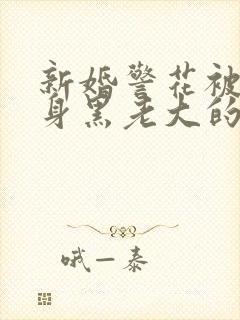 新婚警花被
身黑老大的
哦一泰